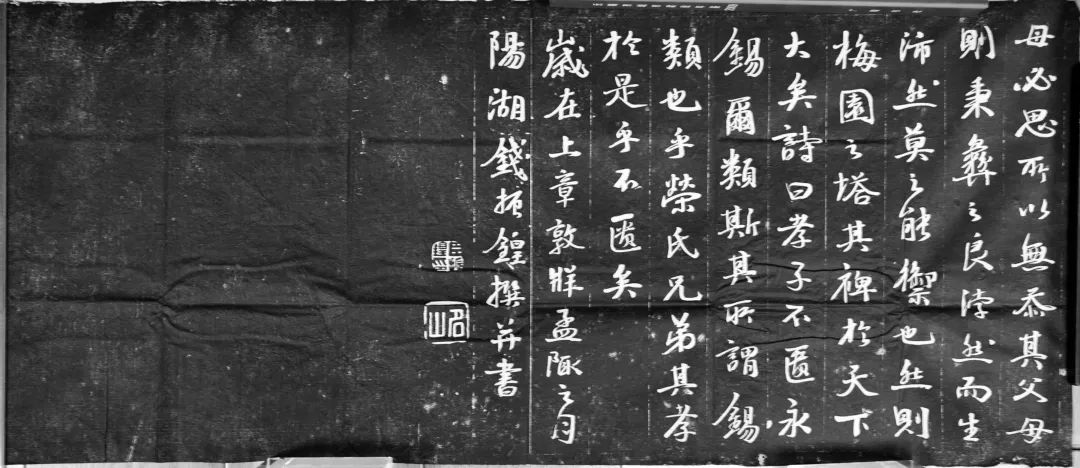 母必思所以無忝其父母
則秉彝之良浡然而生
沛然莫之能禦也然則
梅園之塔其裨於天下
大矣詩曰孝子不匱永
錫爾類斯其所謂錫
類也乎榮氏兄弟其孝
於是乎不匱矣
歲在上章敦牂孟陬之月
陽湖錢振鍠撰并書
名山